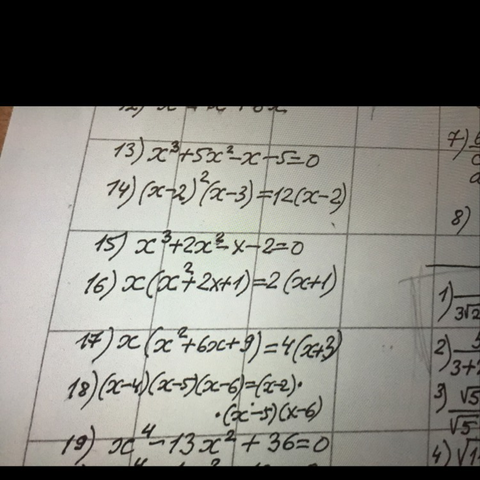 13) x³+5x²-x-5=0
14) (x-2)²(x-3)=12(x-2)
15) x³+2x²-x-2=0
16) x(x²+2x+1)=2(x+1)
17) x(x²+6x+9)=4(x+3)
18) (x-4)(x-5)(x-6)=(x-2)·
·(x-5)(x-6)
19) x⁴-13x²+36=0
7)
8)
1)
3√2
2) 5
3) √5
√5
4)